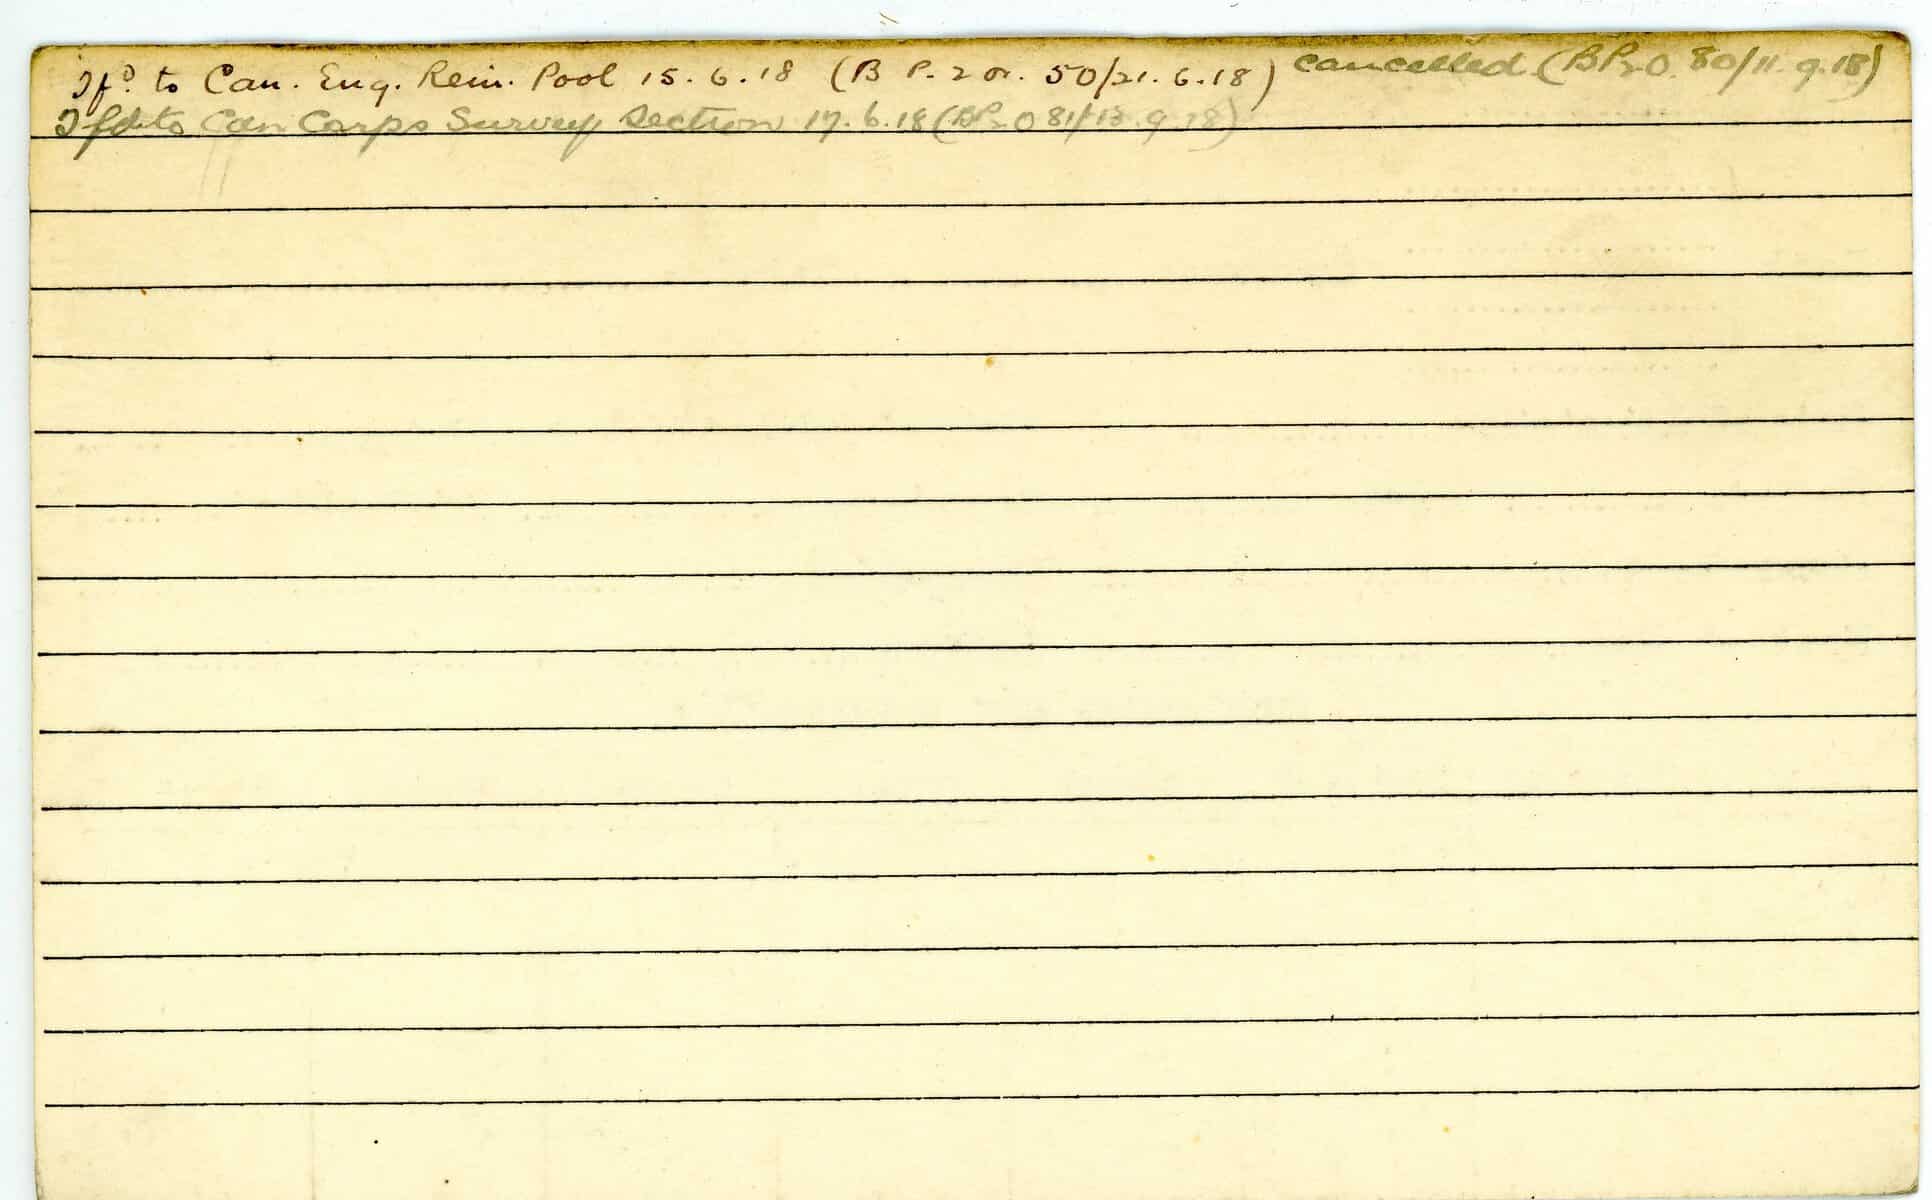 Tfd to Can. Eng. Rein. Pool 15.6.18 (B P. 2 or. 50/21.6.18) cancelled (BP2O. 80/11.9.18)
Tfd to Can Corps Survey Section 17.6.18 (BP2O 81/13.9.18)